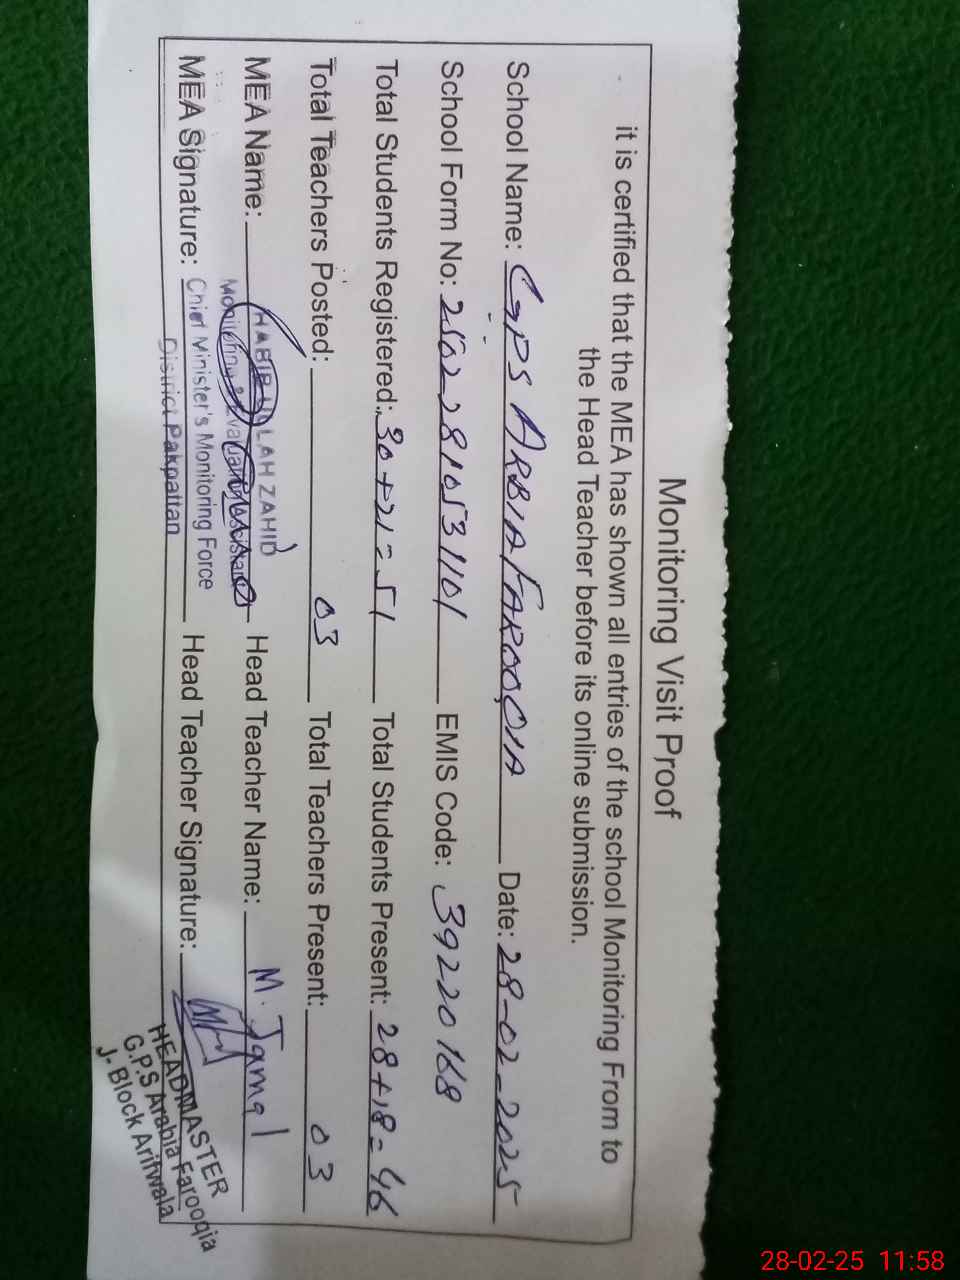 Monitoring Visit Proof
it is certified that the MEA has shown all entries of the school Monitoring From to
the Head Teacher before its online submission.
School Name: GPS ARBIA FAROOQIA Date: 28-02-2025
School Form No: 25022810531101 EMIS Code: 39220168
Total Students Registered: 30+21=51 Total Students Present: 28+18=46
Total Teachers Posted: 03 Total Teachers Present: 03
MEA Name: HABIB ULLAH ZAHID Head Teacher Name: M. Jamal
Monitoring & Evaluation Assistant
MEA Signature: Chief Minister's Monitoring Force Head Teacher Signature:
District Pakpattan
HEADMASTER
G.P.S Arabia Farooqia
J-Block Arifwala
28-02-25 11:58